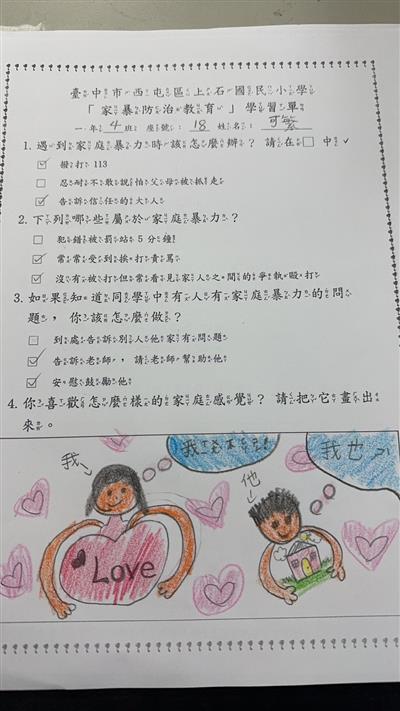 臺中市西屯區上石國民小學
「家暴防治教育」學習單
一年4班 座號：18 姓名：可馨
1. 遇到家庭暴力時該怎麼辦？請在□中✓
☑ 撥打 113
□ 忍耐不敢說怕父母被抓走
☑ 告訴信任的大人
2. 下列哪些屬於家庭暴力？
□ 犯錯被罰站 5 分鐘
☑ 常常受到挨打責罵
☑ 沒有被打但常看見家人之間的爭執毆打
3. 如果知道同學中有人有家庭暴力的問
題，你該怎麼做？
□ 到處告訴別人他家有問題
☑ 告訴老師，請老師幫助他
☑ 安慰鼓勵他
4. 你喜歡怎麼樣的家庭感覺？請把它畫出
來。
我
他
我也
Love